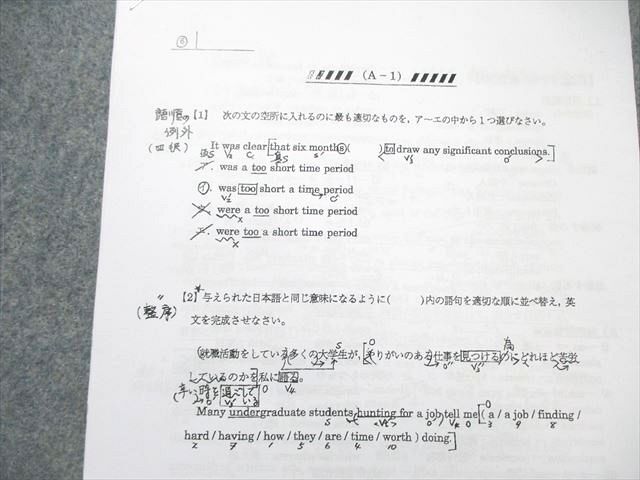 ⑥
(A－1)
語順の 【1】 次の文の空所に入れるのに最も適切なものを，ア～エの中から１つ選びなさい。
例外
(四択) It was clear that six months ( ) to draw any significant conclusions.
仮S V₂ C₁ 真S S' V₃' O'
ア. was a too short time period
イ. was too short a time period
V₂' C'
ウ. were a too short time period
×
エ. were too a short time period
×
【2】 与えられた日本語と同じ意味になるように( )内の語句を適切な順に並べ替え，英
(整序) 文を完成させなさい。
S O
就職活動をしている多くの大学生が，やりがいのある仕事を見つけるのにどれほど苦労
しているのかを私に語る。
O V₄
辛い時を過ごして
いる
Many undergraduate students hunting for a job tell me ( a / a job / finding /
S O V₄ O 3 9 8
hard / having / how / they / are / time / worth ) doing.
2 7 1 5 6 4 10